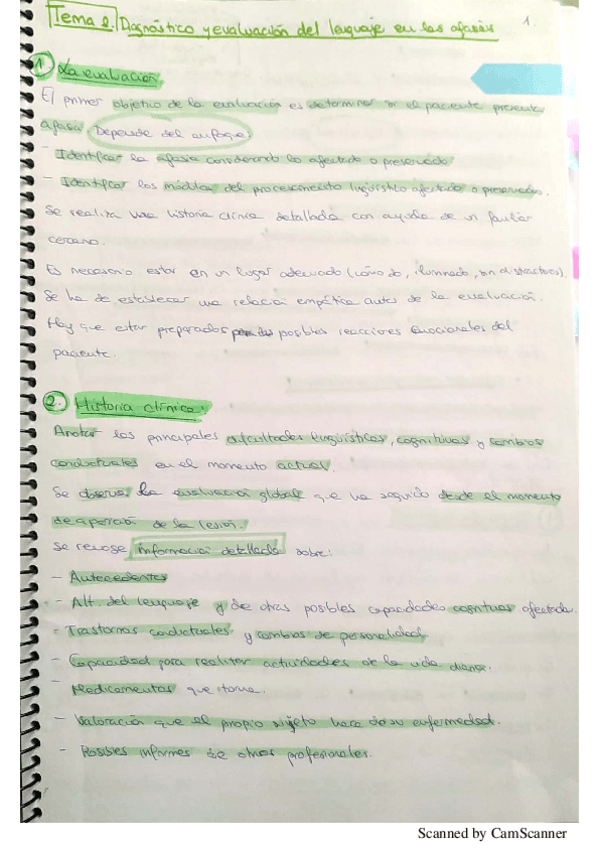 Tema 2. Diagnóstico y evaluación del lenguaje en las afasias
1.
1. La evaluación
El primer objetivo de la evaluación es determinar si el paciente presenta
afasia. Depende del enfoque:
- Identificar la afasia considerando lo afectado o preservado
- Identificar los módulos del procesamiento lingüístico afectado o preservados.
Se realiza una historia clínica detallada con ayuda de un familiar
cercano.
Es necesario estar en un lugar adecuado (cómodo, iluminado, sin distractores).
Se ha de establecer una relación empática antes de la evaluación.
Hay que estar preparados posibles reacciones emocionales del
paciente.
2. Historia clínica.
Anotar los principales dificultades lingüísticas, cognitivas y cambios
conductuales en el momento actual.
Se observa la evaluación global que ha seguido desde el momento
de aparición de la lesión.
Se recoge información detallada sobre:
- Antecedentes
- Alt. del lenguaje y de otras posibles capacidades cognitivas afectada.
- Trastornos conductuales y cambios de personalidad
- Capacidad para realizar actividades de la vida diaria.
- Medicamentos que toma.
- Valoración que el propio sujeto hace de su enfermedad.
- Posibles informes de otros profesionales.
Scanned by CamScanner